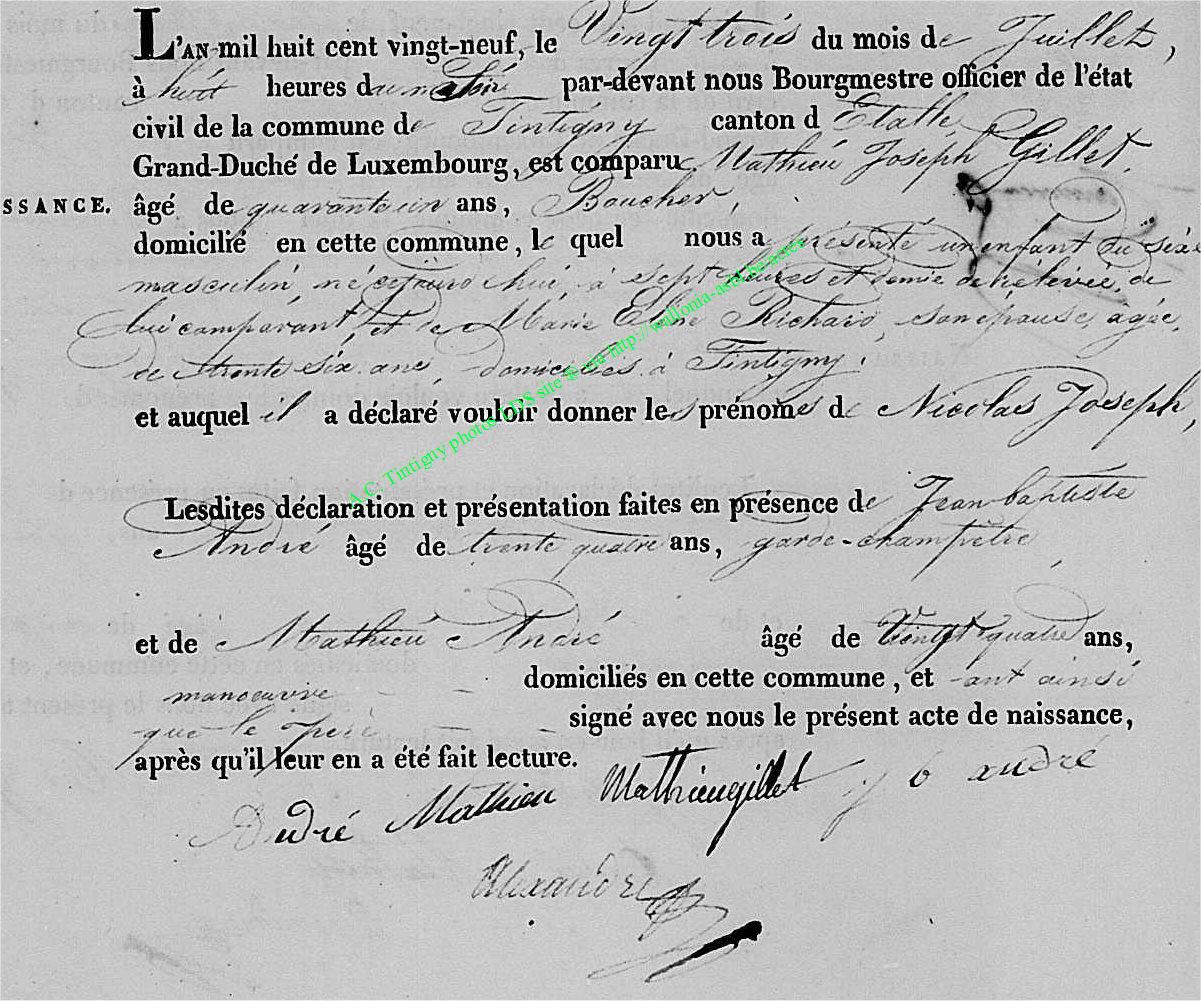 L'AN mil huit cent vingt-neuf, le Vingt trois du mois de Juillet,
à huit heures du matin par-devant nous Bourgmestre officier de l'état
civil de la commune de Tintigny canton d'Etalle
Grand-Duché de Luxembourg, est comparu Mathieu Joseph Gillet,
SSANCE. âgé de quarante un ans, Boucher,
domicilié en cette commune, le quel nous a présenté un enfant du sèxe
masculin, né à sept heures et demie de rélévée, de
lui comparant, et de Marie Richard, son épouse, agée
de trente six ans, domiciliés à Tintigny.
et auquel il a déclaré vouloir donner les prénoms de Nicolas Joseph,
A.C. Tintigny photos LDS site & cie http://wallonia-asbl.be/actes
Lesdites déclaration et présentation faites en présence de Jean baptiste
André âgé de trente quatre ans, garde-champêtre
et de Mathieu André âgé de Vingt quatre ans,
manoeuvre domiciliés en cette commune, et ont ainsi
que le père signé avec nous le présent acte de naissance,
après qu'il leur en a été fait lecture.
André Mathieu Mathieu gillet j b andré
Alexandre